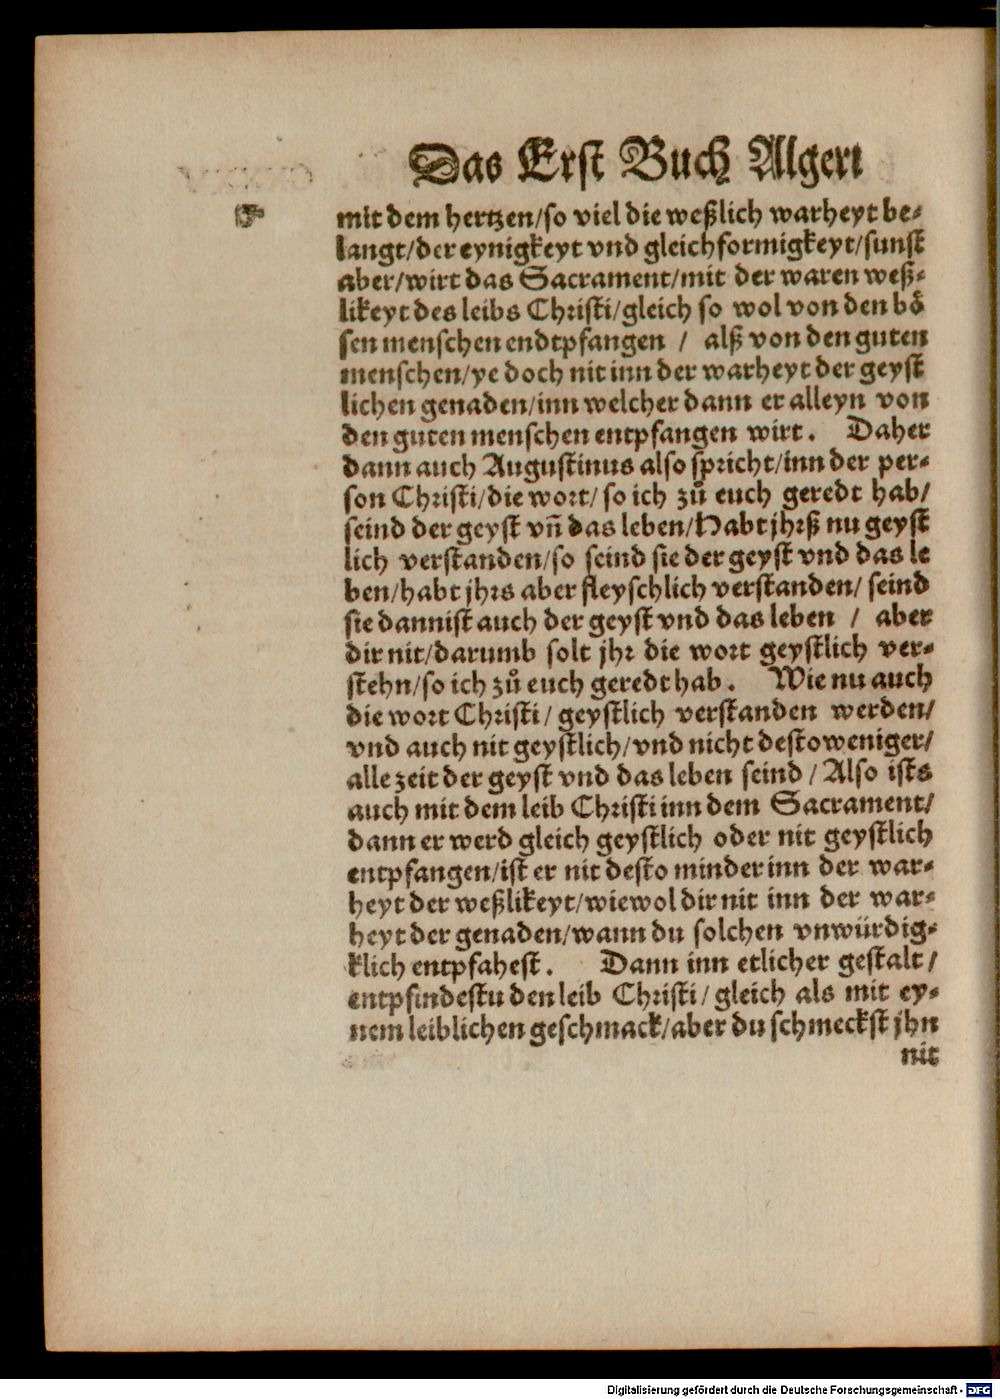 Das Erst Buch Algeri
☞ mit dem hertzen/so viel die weßlich warheyt be⸗
langt/der eynigkeyt vnd gleichformigkeyt/sunst
aber/wirt das Sacrament/mit der waren weß⸗
likeyt des leibs Christi/gleich so wol von den boͤ
sen menschen endtpfangen / alß von den guten
menschen/ye doch nit inn der warheyt der geyst
lichen genaden/inn welcher dann er alleyn von
den guten menschen entpfangen wirt. Daher
dann auch Augustinus also spricht/inn der per⸗
son Christi/die wort/so ich zuͦ euch geredt hab/
seind der geyst vñ das leben/Habt jhrß nu geyst
lich verstanden/so seind sie der geyst vnd das le
ben/habt jhrs aber fleyschlich verstanden/ seind
sie dannist auch der geyst vnd das leben / aber
dir nit/darumb solt jhr die wort geystlich ver⸗
stehn/so ich zuͦ euch geredt hab. Wie nu auch
die wort Christi/ geystlich verstanden werden/
vnd auch nit geystlich/vnd nicht destoweniger/
alle zeit der geyst vnd das leben seind / Also ists
auch mit dem leib Christi inn dem Sacrament/
dann er werd gleich geystlich oder nit geystlich
entpfangen/ist er nit desto minder inn der war⸗
heyt der weßlikeyt/wiewol dir nit inn der war⸗
heyt der genaden/wann du solchen vnwürdig⸗
klich entpfahest. Dann inn etlicher gestalt/
entpfindestu den leib Christi/ gleich als mit ey⸗
nem leiblichen geschmack/aber du schmeckst jhn
nit
Digitalisierung gefördert durch die Deutsche Forschungsgemeinschaft - DFG